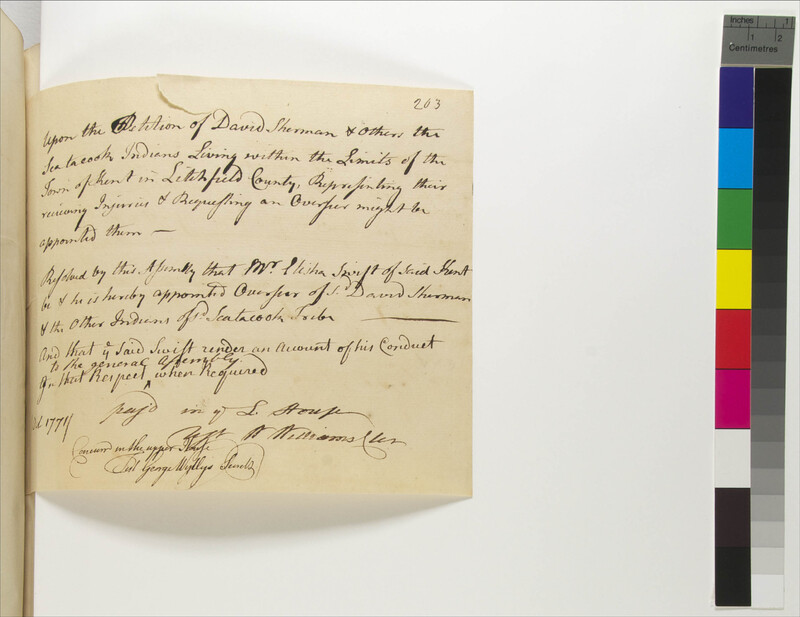 203
Upon the Petition of David Sherman & Others the
Scatacook Indians Living within the Limits of the
Town of Kent in Litchfield County, Representing their
receiving Injuries & Requesting an Overseer might be
appointed them —
Resolved by this Assembly that Mr. Elisha Swift of Said Kent
be & he is hereby appointed Overseer of sd. David Sherman
& the Other Indians of sd. Scatacook Tribe
And that ye Said Swift render an Account of his Conduct
to the general Assembly
In that Respect ^ when Required
pass'd in ye L. House
Test W Williams Cler
Concurd in the upper House
Test George Wyllys Secrety
Inches 1
1 2
Centimetres